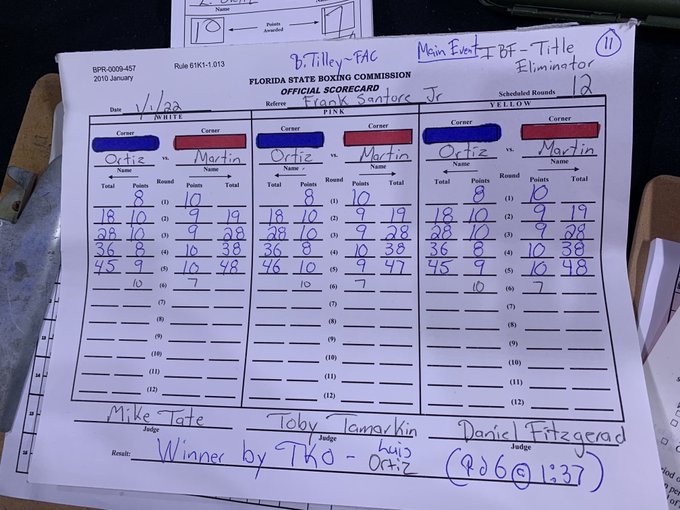 L. Ortiz
Name Name
10 Points Awarded 7
BPR-0009-457
2010 January
Rule 61K1-1.013
B. Tilley~FAC
Main Event IBF-Title Eliminator
11
FLORIDA STATE BOXING COMMISSION
OFFICIAL SCORECARD
Date 1/1/22 Referee Frank Santore Jr Scheduled Rounds 12
WHITE PINK YELLOW
Corner Corner Corner Corner Corner Corner
Ortiz vs. Martin Ortiz vs. Martin Ortiz vs. Martin
Name Name Name Name Name Name
Total Points Round Points Total Total Points Round Points Total Total Points Round Points Total
8 (1) 10 8 (1) 10 8 (1) 10
18 10 (2) 9 19 18 10 (2) 9 19 18 10 (2) 9 19
28 10 (3) 9 28 28 10 (3) 9 28 28 10 (3) 9 28
36 8 (4) 10 38 36 8 (4) 10 38 36 8 (4) 10 38
45 9 (5) 10 48 46 10 (5) 9 47 45 9 (5) 10 48
10 (6) 7 10 (6) 7 10 (6) 7
(7) (7) (7)
(8) (8) (8)
(9) (9) (9)
(10) (10) (10)
(11) (11) (11)
(12) (12) (12)
Mike Tate Toby Tamarkin Daniel Fitzgerad
Judge Judge Judge
Result: Winner by TKO - Luis Ortiz (Rd 6 @ 1:37)